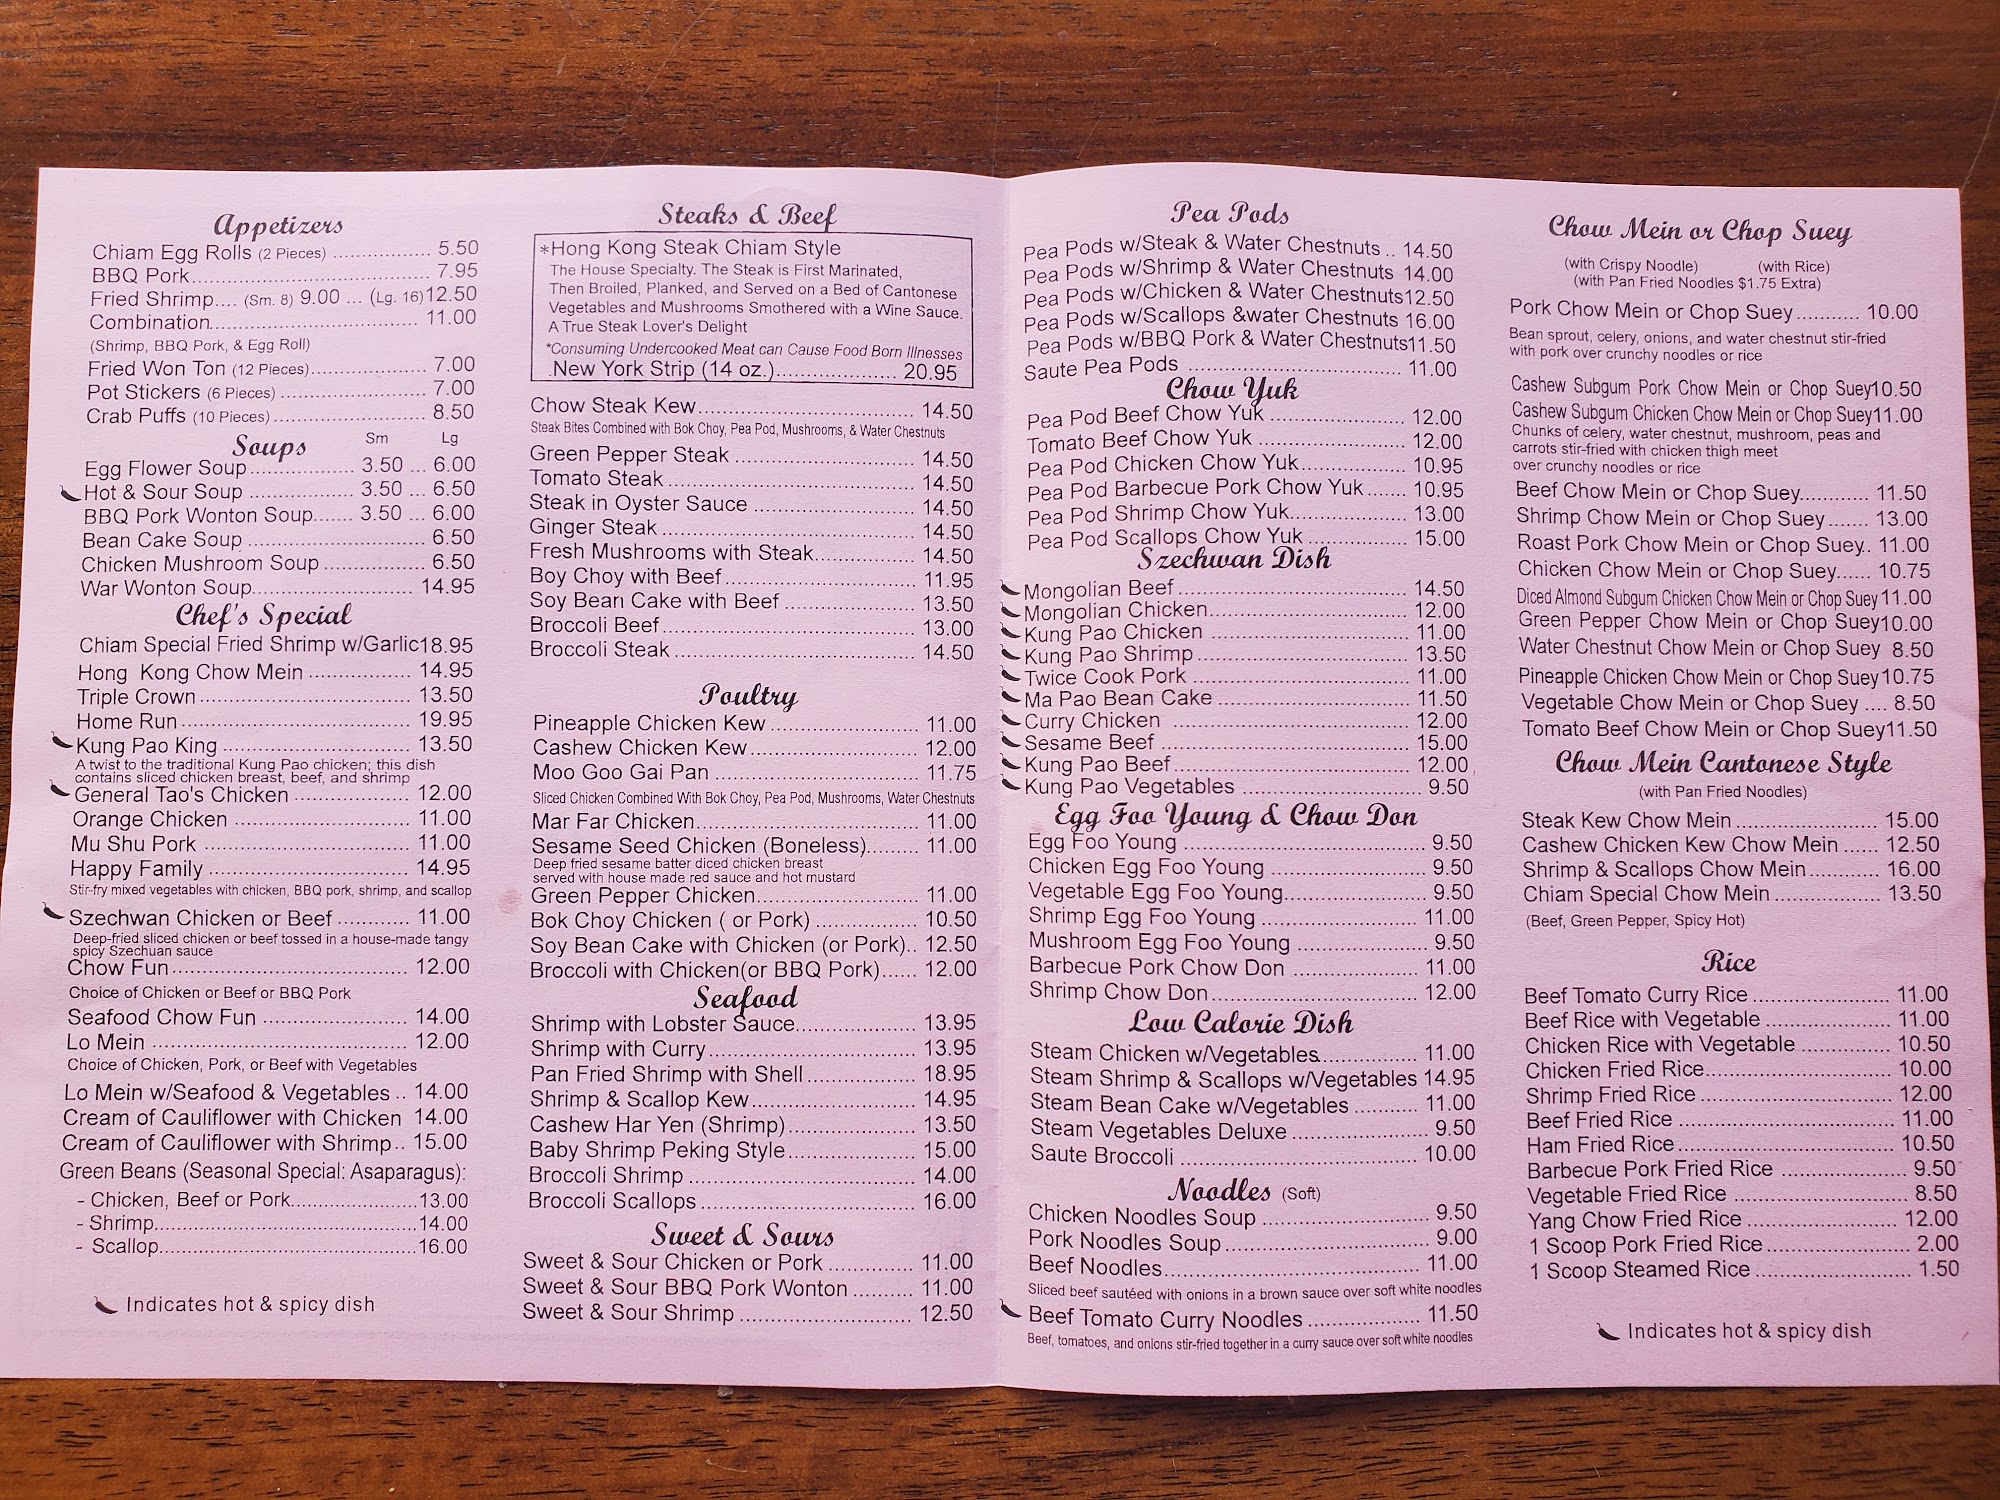 Appetizers
Chiam Egg Rolls (2 Pieces) ................. 5.50
BBQ Pork ................. 7.95
Fried Shrimp.... (Sm. 8) 9.00 ... (Lg. 16) 12.50
Combination ................. 11.00
(Shrimp, BBQ Pork, & Egg Roll)
Fried Won Ton (12 Pieces) ................. 7.00
Pot Stickers (6 Pieces) ................. 7.00
Crab Puffs (10 Pieces) ................. 8.50
Soups Sm Lg
Egg Flower Soup ................. 3.50 ... 6.00
Hot & Sour Soup ................. 3.50 ... 6.50
BBQ Pork Wonton Soup....... 3.50 ... 6.00
Bean Cake Soup ................. 6.50
Chicken Mushroom Soup ................. 6.50
War Wonton Soup ................. 14.95
Chef's Special
Chiam Special Fried Shrimp w/Garlic 18.95
Hong Kong Chow Mein ................. 14.95
Triple Crown ................. 13.50
Home Run ................. 19.95
Kung Pao King ................. 13.50
A twist to the traditional Kung Pao chicken; this dish
contains sliced chicken breast, beef, and shrimp
General Tao's Chicken ................. 12.00
Orange Chicken ................. 11.00
Mu Shu Pork ................. 11.00
Happy Family ................. 14.95
Stir-fry mixed vegetables with chicken, BBQ pork, shrimp, and scallop
Szechwan Chicken or Beef ........... 11.00
Deep-fried sliced chicken or beef tossed in a house-made tangy
spicy Szechuan sauce
Chow Fun ................. 12.00
Choice of Chicken or Beef or BBQ Pork
Seafood Chow Fun ................. 14.00
Lo Mein ................. 12.00
Choice of Chicken, Pork, or Beef with Vegetables
Lo Mein w/Seafood & Vegetables .. 14.00
Cream of Cauliflower with Chicken 14.00
Cream of Cauliflower with Shrimp.. 15.00
Green Beans (Seasonal Special: Asaparagus):
- Chicken, Beef or Pork ................. 13.00
- Shrimp ................. 14.00
- Scallop ................. 16.00
Indicates hot & spicy dish
Steaks & Beef
*Hong Kong Steak Chiam Style
The House Specialty. The Steak is First Marinated,
Then Broiled, Planked, and Served on a Bed of Cantonese
Vegetables and Mushrooms Smothered with a Wine Sauce.
A True Steak Lover's Delight
*Consuming Undercooked Meat can Cause Food Born Illnesses
New York Strip (14 oz.) ................. 20.95
Chow Steak Kew ................. 14.50
Steak Bites Combined with Bok Choy, Pea Pod, Mushrooms, & Water Chestnuts
Green Pepper Steak ................. 14.50
Tomato Steak ................. 14.50
Steak in Oyster Sauce ................. 14.50
Ginger Steak ................. 14.50
Fresh Mushrooms with Steak ................. 14.50
Boy Choy with Beef ................. 11.95
Soy Bean Cake with Beef ................. 13.50
Broccoli Beef ................. 13.00
Broccoli Steak ................. 14.50
Poultry
Pineapple Chicken Kew ................. 11.00
Cashew Chicken Kew ................. 12.00
Moo Goo Gai Pan ................. 11.75
Sliced Chicken Combined With Bok Choy, Pea Pod, Mushrooms, Water Chestnuts
Mar Far Chicken ................. 11.00
Sesame Seed Chicken (Boneless) ........ 11.00
Deep fried sesame batter diced chicken breast
served with house made red sauce and hot mustard
Green Pepper Chicken ................. 11.00
Bok Choy Chicken ( or Pork) ................. 10.50
Soy Bean Cake with Chicken (or Pork).. 12.50
Broccoli with Chicken(or BBQ Pork)...... 12.00
Seafood
Shrimp with Lobster Sauce ................. 13.95
Shrimp with Curry ................. 13.95
Pan Fried Shrimp with Shell ................. 18.95
Shrimp & Scallop Kew ................. 14.95
Cashew Har Yen (Shrimp) ................. 13.50
Baby Shrimp Peking Style ................. 15.00
Broccoli Shrimp ................. 14.00
Broccoli Scallops ................. 16.00
Sweet & Sours
Sweet & Sour Chicken or Pork ............. 11.00
Sweet & Sour BBQ Pork Wonton .......... 11.00
Sweet & Sour Shrimp ................. 12.50
Pea Pods
Pea Pods w/Steak & Water Chestnuts .. 14.50
Pea Pods w/Shrimp & Water Chestnuts 14.00
Pea Pods w/Chicken & Water Chestnuts 12.50
Pea Pods w/Scallops &water Chestnuts 16.00
Pea Pods w/BBQ Pork & Water Chestnuts 11.50
Saute Pea Pods ................. 11.00
Chow Yuk
Pea Pod Beef Chow Yuk ................. 12.00
Tomato Beef Chow Yuk ................. 12.00
Pea Pod Chicken Chow Yuk ................. 10.95
Pea Pod Barbecue Pork Chow Yuk ...... 10.95
Pea Pod Shrimp Chow Yuk ................. 13.00
Pea Pod Scallops Chow Yuk ................. 15.00
Szechwan Dish
Mongolian Beef ................. 14.50
Mongolian Chicken ................. 12.00
Kung Pao Chicken ................. 11.00
Kung Pao Shrimp ................. 13.50
Twice Cook Pork ................. 11.00
Ma Pao Bean Cake ................. 11.50
Curry Chicken ................. 12.00
Sesame Beef ................. 15.00
Kung Pao Beef ................. 12.00
Kung Pao Vegetables ................. 9.50
Egg Foo Young & Chow Don
Egg Foo Young ................. 9.50
Chicken Egg Foo Young ................. 9.50
Vegetable Egg Foo Young ................. 9.50
Shrimp Egg Foo Young ................. 11.00
Mushroom Egg Foo Young ................. 9.50
Barbecue Pork Chow Don ................. 11.00
Shrimp Chow Don ................. 12.00
Low Calorie Dish
Steam Chicken w/Vegetables ............. 11.00
Steam Shrimp & Scallops w/Vegetables 14.95
Steam Bean Cake w/Vegetables .......... 11.00
Steam Vegetables Deluxe ................. 9.50
Saute Broccoli ................. 10.00
Noodles (Soft)
Chicken Noodles Soup ................. 9.50
Pork Noodles Soup ................. 9.00
Beef Noodles ................. 11.00
Sliced beef sautéed with onions in a brown sauce over soft white noodles
Beef Tomato Curry Noodles ................. 11.50
Beef, tomatoes, and onions stir-fried together in a curry sauce over soft white noodles
Chow Mein or Chop Suey
(with Crispy Noodle) (with Rice)
(with Pan Fried Noodles $1.75 Extra)
Pork Chow Mein or Chop Suey .......... 10.00
Bean sprout, celery, onions, and water chestnut stir-fried
with pork over crunchy noodles or rice
Cashew Subgum Pork Chow Mein or Chop Suey 10.50
Cashew Subgum Chicken Chow Mein or Chop Suey 11.00
Chunks of celery, water chestnut, mushroom, peas and
carrots stir-fried with chicken thigh meet
over crunchy noodles or rice
Beef Chow Mein or Chop Suey ............ 11.50
Shrimp Chow Mein or Chop Suey ....... 13.00
Roast Pork Chow Mein or Chop Suey.. 11.00
Chicken Chow Mein or Chop Suey ...... 10.75
Diced Almond Subgum Chicken Chow Mein or Chop Suey 11.00
Green Pepper Chow Mein or Chop Suey 10.00
Water Chestnut Chow Mein or Chop Suey 8.50
Pineapple Chicken Chow Mein or Chop Suey 10.75
Vegetable Chow Mein or Chop Suey .... 8.50
Tomato Beef Chow Mein or Chop Suey 11.50
Chow Mein Cantonese Style
(with Pan Fried Noodles)
Steak Kew Chow Mein ................. 15.00
Cashew Chicken Kew Chow Mein ...... 12.50
Shrimp & Scallops Chow Mein ............ 16.00
Chiam Special Chow Mein ................. 13.50
(Beef, Green Pepper, Spicy Hot)
Rice
Beef Tomato Curry Rice ................. 11.00
Beef Rice with Vegetable ................. 11.00
Chicken Rice with Vegetable .............. 10.50
Chicken Fried Rice ................. 10.00
Shrimp Fried Rice ................. 12.00
Beef Fried Rice ................. 11.00
Ham Fried Rice ................. 10.50
Barbecue Pork Fried Rice ................. 9.50
Vegetable Fried Rice ................. 8.50
Yang Chow Fried Rice ................. 12.00
1 Scoop Pork Fried Rice ................. 2.00
1 Scoop Steamed Rice ................. 1.50
Indicates hot & spicy dish